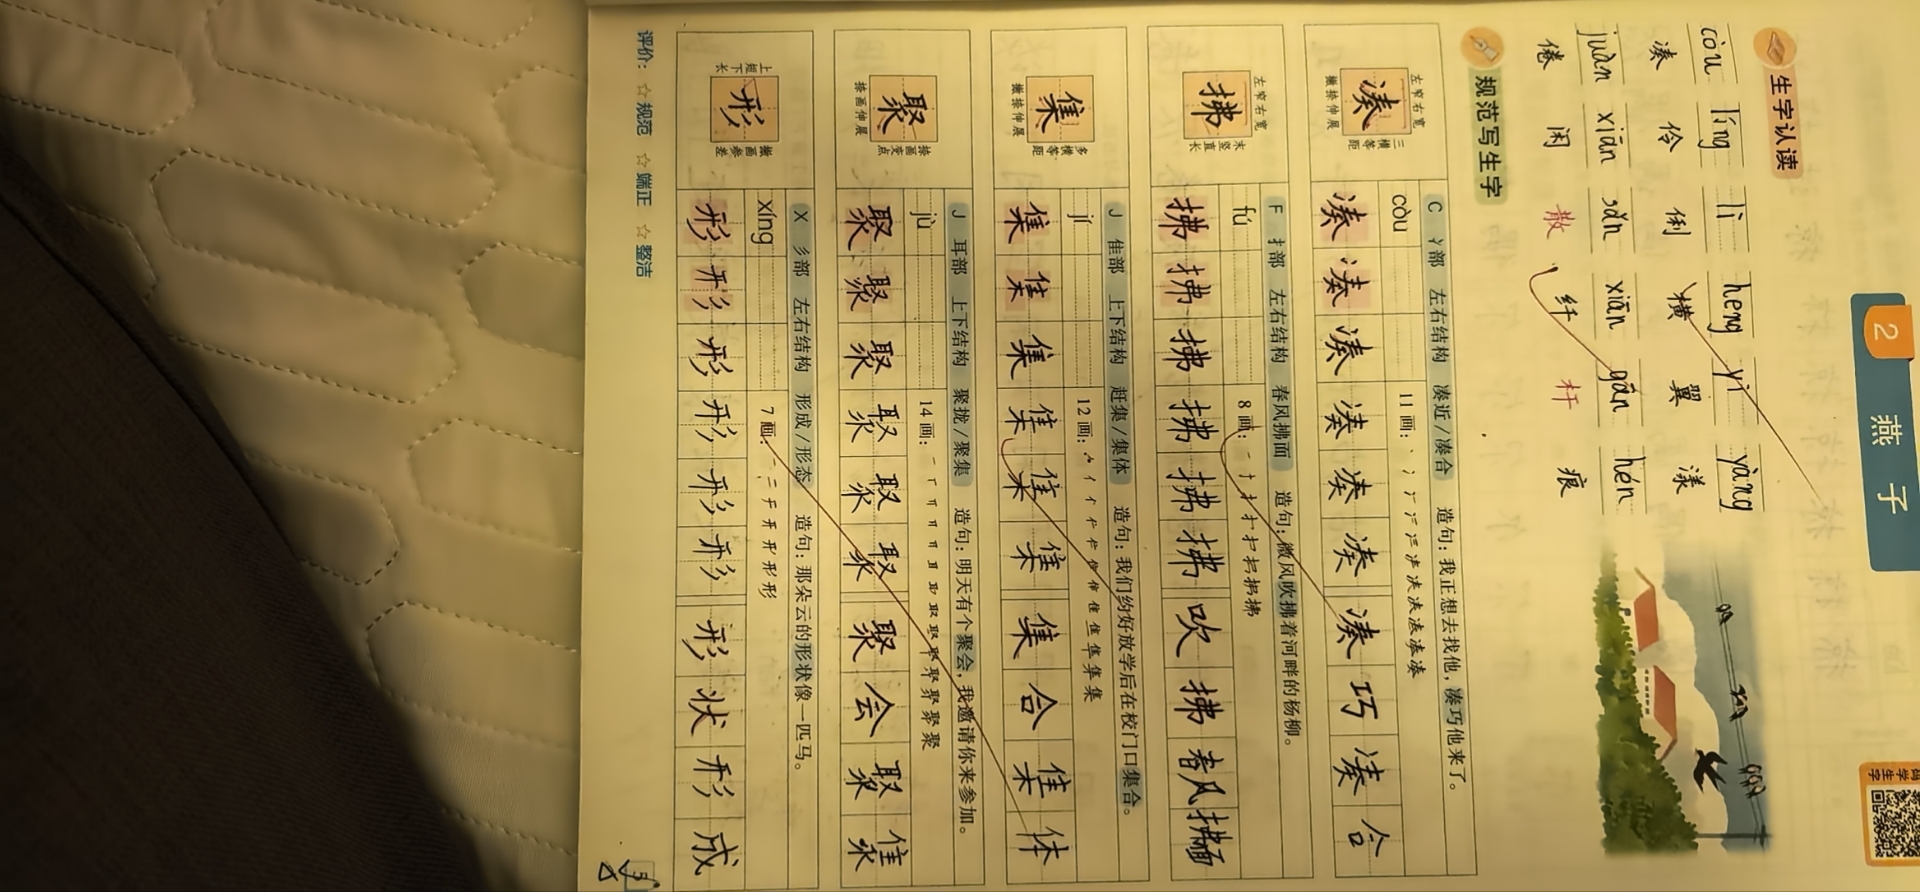 2 燕子
生字认读
còu líng lì héng yì yàng
凑 伶 俐 横 翼 漾
juàn xián sǎn xiān gān hén
倦 闲 散 纤 杆 痕
规范写生字
左窄右宽
三横等距
撇捺伸展
凑
C 冫部 左右结构 凑近/凑合 造句：我正想去找他，凑巧他来了。
còu 11画：
凑 凑 凑 凑 凑 凑 凑 巧 凑 合
左窄右宽
末竖直长
拂
F 扌部 左右结构 春风拂面 造句：微风吹拂着河畔的杨柳。
fú 8画：
拂 拂 拂 拂 拂 拂 吹 拂 春风拂面
多横等距
撇捺伸展
集
J 隹部 上下结构 赶集/集体 造句：我们约好放学后在校门口集合。
jí 12画：
集 集 集 集 集 集 集 合 集 体
捺画变点
捺画伸展
聚
J 耳部 上下结构 聚拢/聚集 造句：明天有个聚会，我邀请你来参加。
jù 14画：
聚 聚 聚 聚 聚 聚 聚 会 聚 集
撇画参差
上短下长
形
X 彡部 左右结构 形成/形态 造句：那朵云的形状像一匹马。
xíng 7画：
形 形 形 形 形 形 形 状 形 成
评价： ☆ 规范 ☆ 端正 ☆ 整洁